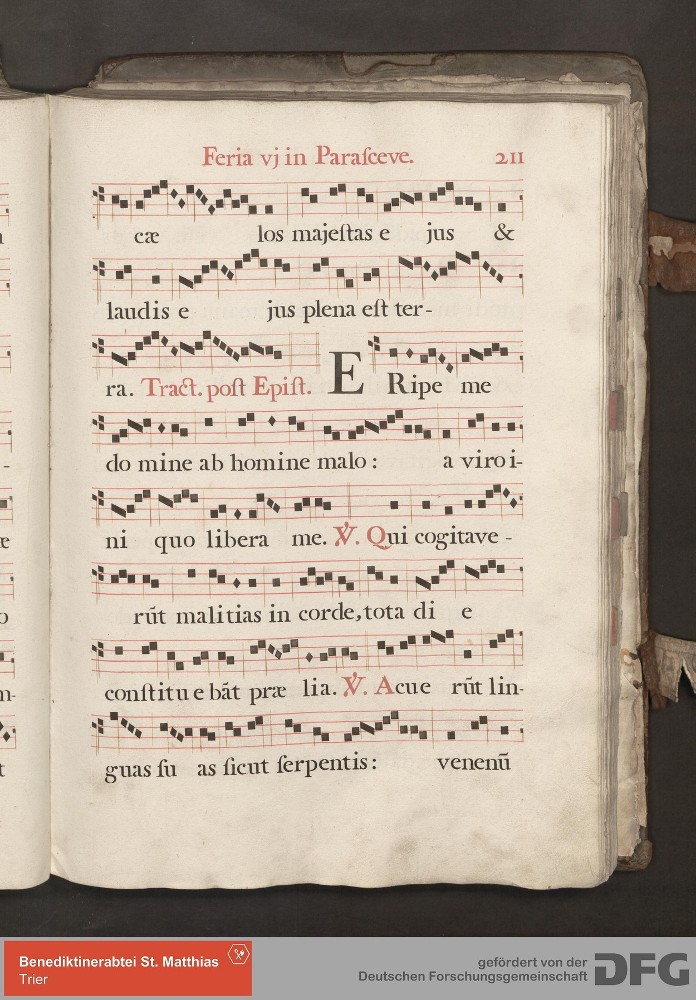 Feria vj in Paraſceve. 211
cæ los majeſtas e jus &
laudis e jus plena eſt ter-
ra. Tract. poſt Epiſt. E Ripe me
do mine ab homine malo : a viro i-
ni quo libera me. ℣. Qui cogitave -
rūt malitias in corde, tota di e
conſtitu e bāt præ lia. ℣. Acue rūt lin-
guas ſu as ſicut ſerpentis : venenū
Benediktinerabtei St. Matthias
Trier
gefördert von der
Deutschen Forschungsgemeinschaft
DFG